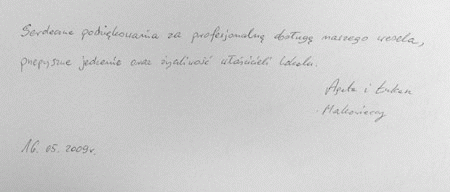 Serdeczne podziękowania za profesjonalną obsługę naszego wesela,
przepyszne jedzenie oraz życzliwość właścicieli lokalu.
Agata i Łukasz
16.05.2009r.